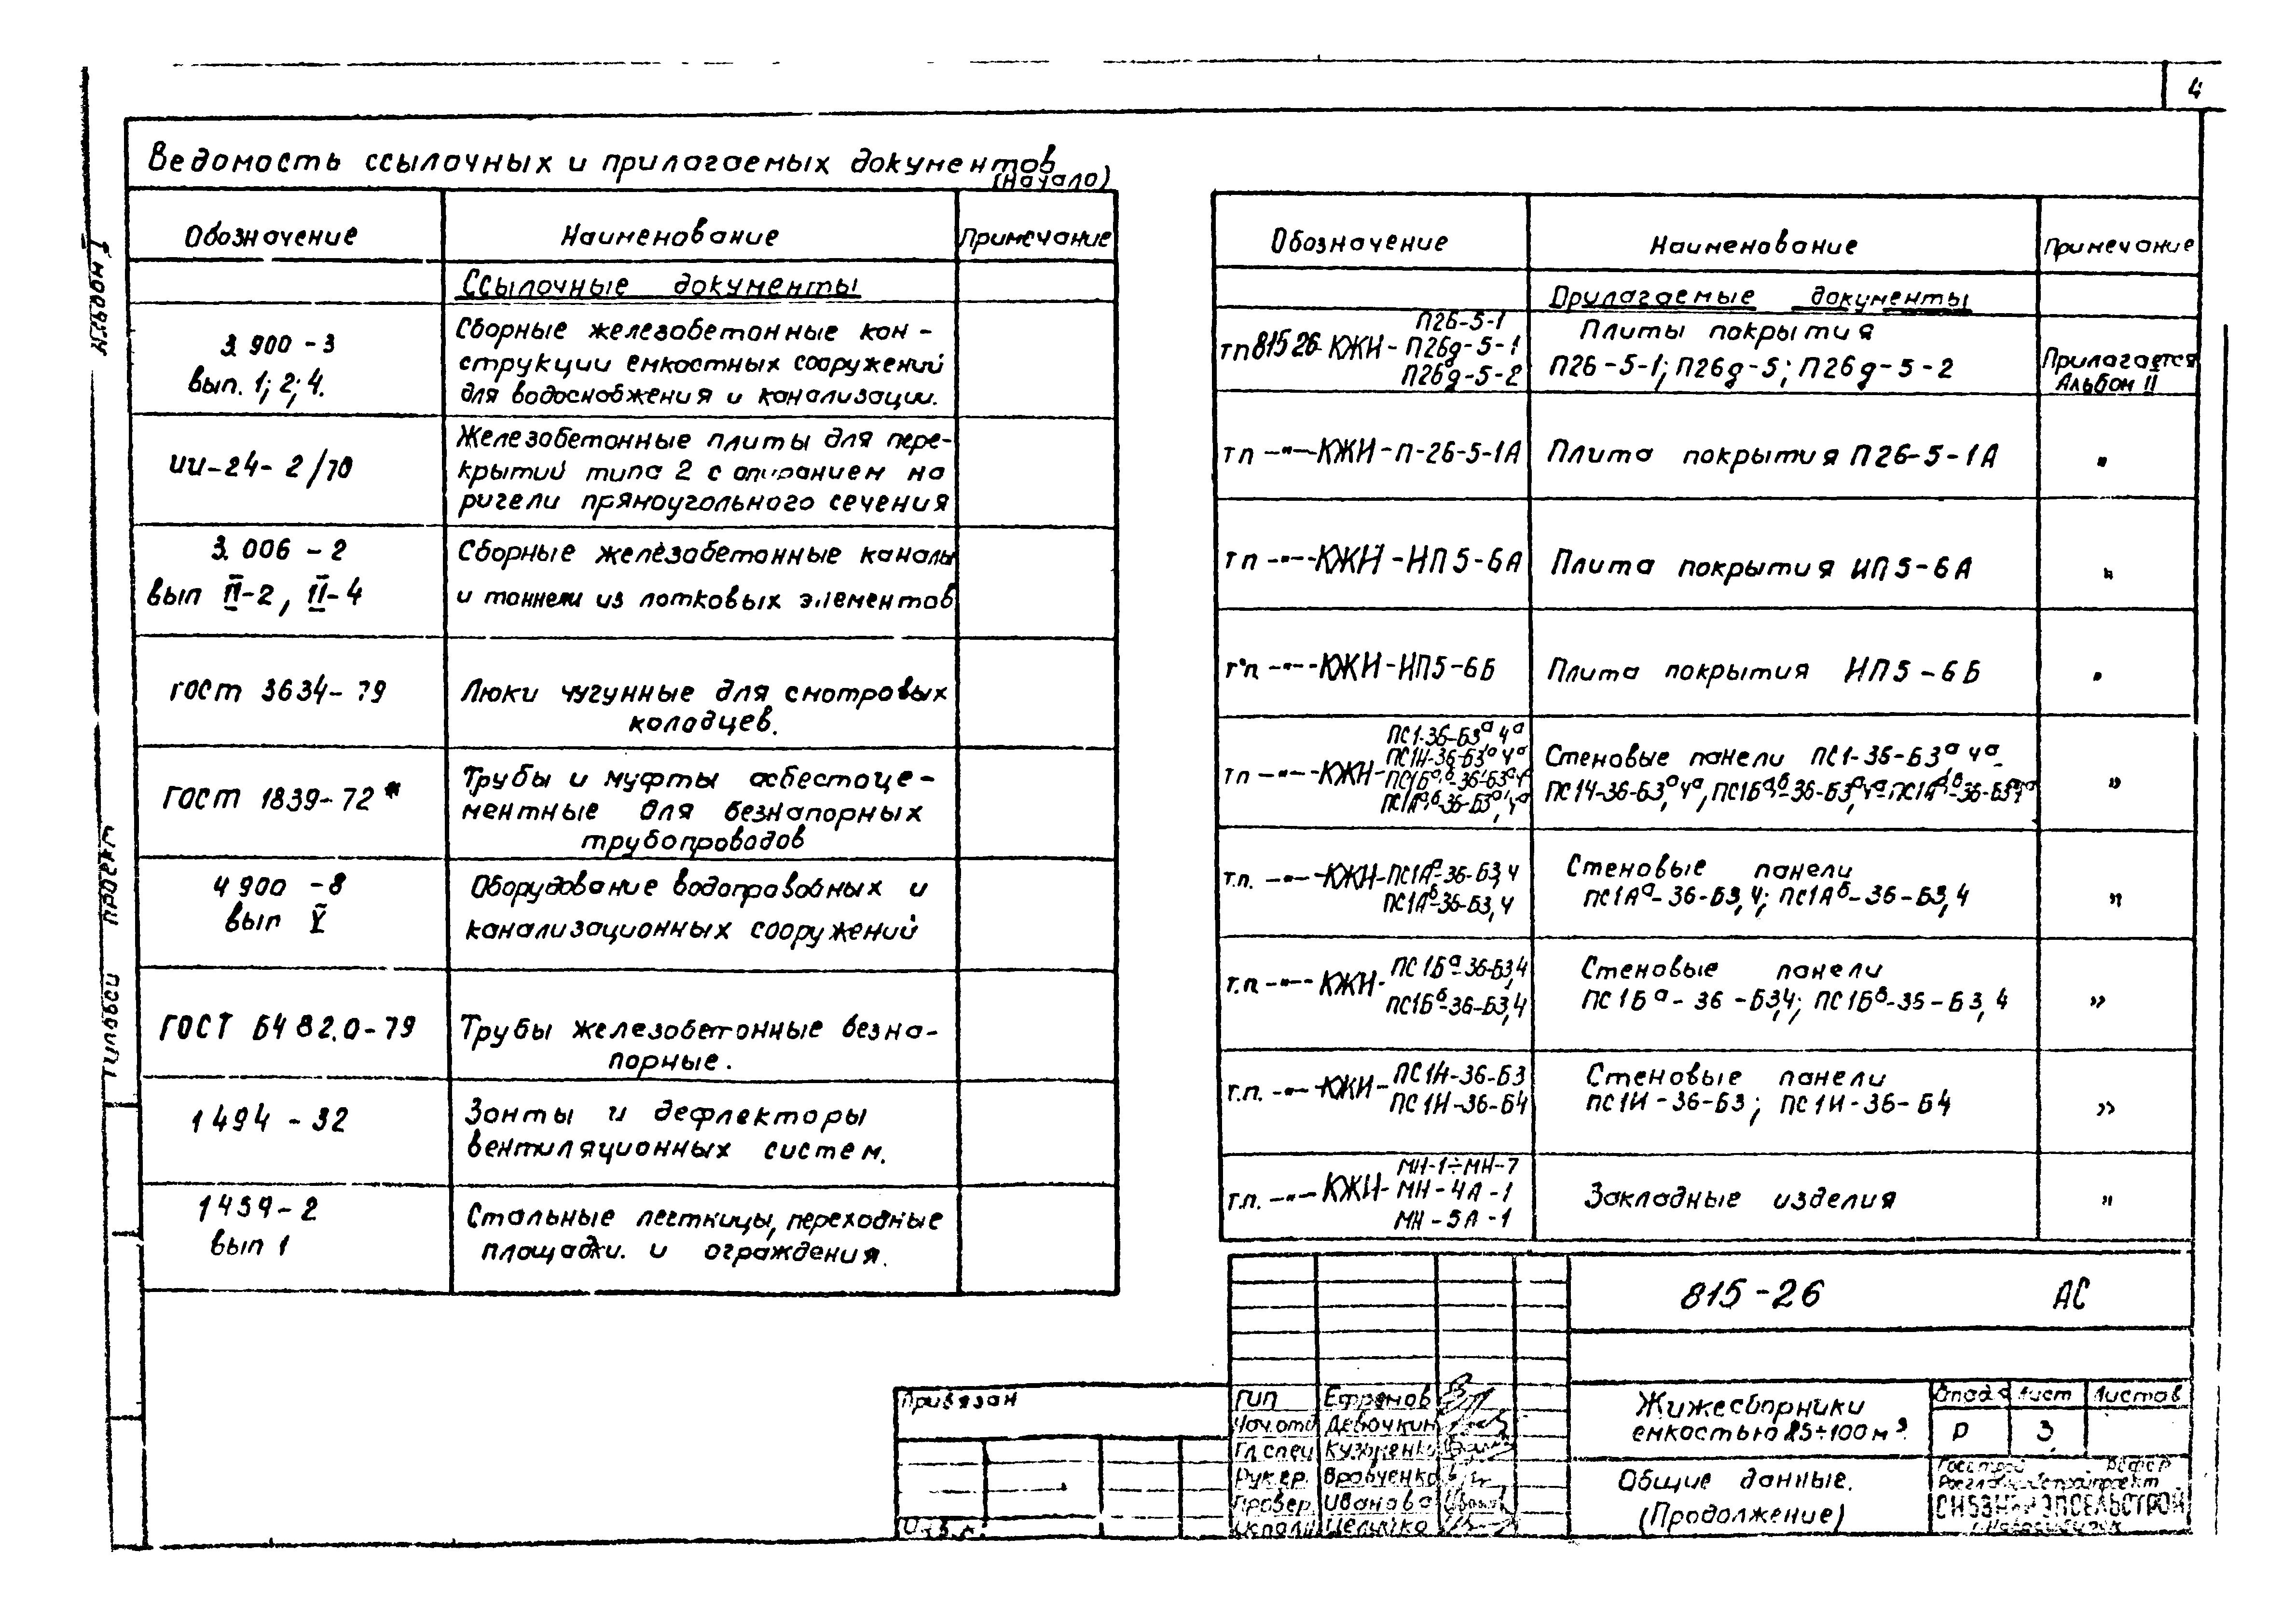 4
Альбом I
Типовой проект
Ведомость ссылочных и прилагаемых документов
(начало)
Обозначение Наименование Примечание
Ссылочные документы
3.900-3
вып. 1; 2; 4.
Сборные железобетонные кон-
струкции емкостных сооружений
для водоснабжения и канализации.
ИИ-24-2/70
Железобетонные плиты для пере-
крытий типа 2 с опиранием на
ригели прямоугольного сечения
3.006-2
вып II-2, II-4
Сборные железобетонные каналы
и тоннели из лотковых элементов
ГОСТ 3634-79
Люки чугунные для смотровых
колодцев.
ГОСТ 1839-72*
Трубы и муфты асбестоце-
ментные для безнапорных
трубопроводов
4 900-8
вып V
Оборудование водопроводных и
канализационных сооружений
ГОСТ 6482.0-79
Трубы железобетонные безна-
порные.
1494-32
Зонты и дефлекторы
вентиляционных систем.
1459-2
вып 1
Стальные лестницы, переходные
площадки. и ограждения.
Обозначение Наименование Примечание
Прилагаемые документы
П26-5-1
тп 815 26-КЖИ-П26д-5-1
П26д-5-2
Плиты покрытия
П26-5-1; П26д-5; П26д-5-2
Прилагается
Альбом II
тп -"- КЖИ-П-26-5-1А Плита покрытия П26-5-1А "
тп -"- КЖИ-ИП5-6А Плита покрытия ИП5-6А "
тп -"- КЖИ-ИП5-6Б Плита покрытия ИП5-6Б "
тп -"- КЖИ-
ПС1-36-Б3ᵃ 4ᵃ
ПС1И-36-Б3ᵃ 4ᵃ
Стеновые панели ПС1-36-Б3ᵃ 4ᵃ
"
т.п. -"- КЖИ-ПС1Аᵃ-36-Б3,4
ПС1Аᵇ-36-Б3,4
Стеновые панели
ПС1Аᵃ-36-Б3,4; ПС1Аᵇ-36-Б3,4
"
т.п -"- КЖИ-
ПС1Бᵃ-36-Б3,4
ПС1Бᵇ-36-Б3,4
Стеновые панели
ПС1Бᵃ-36-Б3,4; ПС1Бᵇ-36-Б3,4
"
т.п. -"- КЖИ-
ПС1И-36-Б3
ПС1И-36-Б4
Стеновые панели
ПС1И-36-Б3; ПС1И-36-Б4
"
т.п. -"- КЖИ-
МН-1÷МН-7
МН-4А-1
МН-5А-1
Закладные изделия
"
815-26 АС
Привязан
Инв.
ГИП Ефремов
Нач.отд Девочкин
Гл.спец
Рук.гр.
Провер. Иванова
Исполн
Жижесборники
емкостью 25÷100 м³
Стадия Лист Листов
Р 3
Общие данные.
(Продолжение)
Госстрой РСФСР